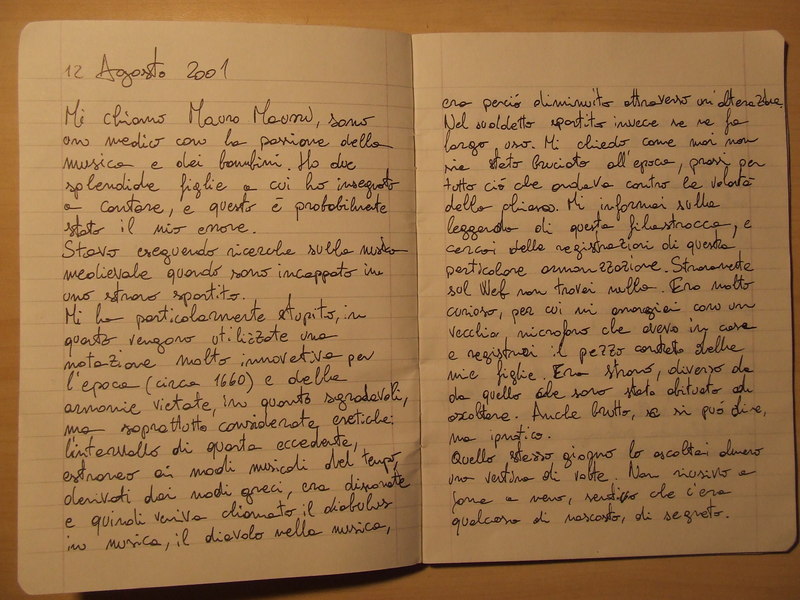 12 Agosto 2001
Mi chiamo Mauro Mauri, sono
un medico con la passione della
musica e dei bambini. Ho due
splendide figlie a cui ho insegnato
a cantare, e questo è probabilmente
stato il mio errore.
Stavo eseguendo ricerche sulla musica
medievale quando sono incappato in
uno strano spartito.
Mi ha particolarmente stupito, in
quanto vengono utilizzate una
notazione molto innovativa per
l'epoca (circa 1660) e delle
armonie vietate, in quanto sgradevoli,
ma soprattutto considerate eretiche:
l'intervallo di quarta eccedente,
estraneo ai modi musicali del tempo,
derivati dai modi greci, era disparato
e quindi veniva chiamato il diabulus
in musica, il diavolo nella musica,
era perciò diminuito attraverso un'alterazione.
Nel suddetto spartito invece se ne fa
largo uso. Mi chiedo come mai non
sia stato bruciato all'epoca, prassi per
tutto ciò che andava contro la volontà
della chiesa. Mi informai sulla
leggenda di questa filastrocca, e
cercai delle registrazioni di questa
particolare armonizzazione. Stranamente
sul Web non trovai nulla. Ero molto
curioso, per cui mi arrangiai con un
vecchio microfono che avevo in casa
e registrai il pezzo cantato dalle
mie figlie. Era strano, diverso da
da quello che sono stato abituato ad
ascoltare. Anche brutto, se si può dire,
ma ipnotico.
Quello stesso giorno lo ascoltai almeno
una ventina di volte. Non riuscivo a
farne a meno, sentivo che c'era
qualcosa di nascosto, di segreto.